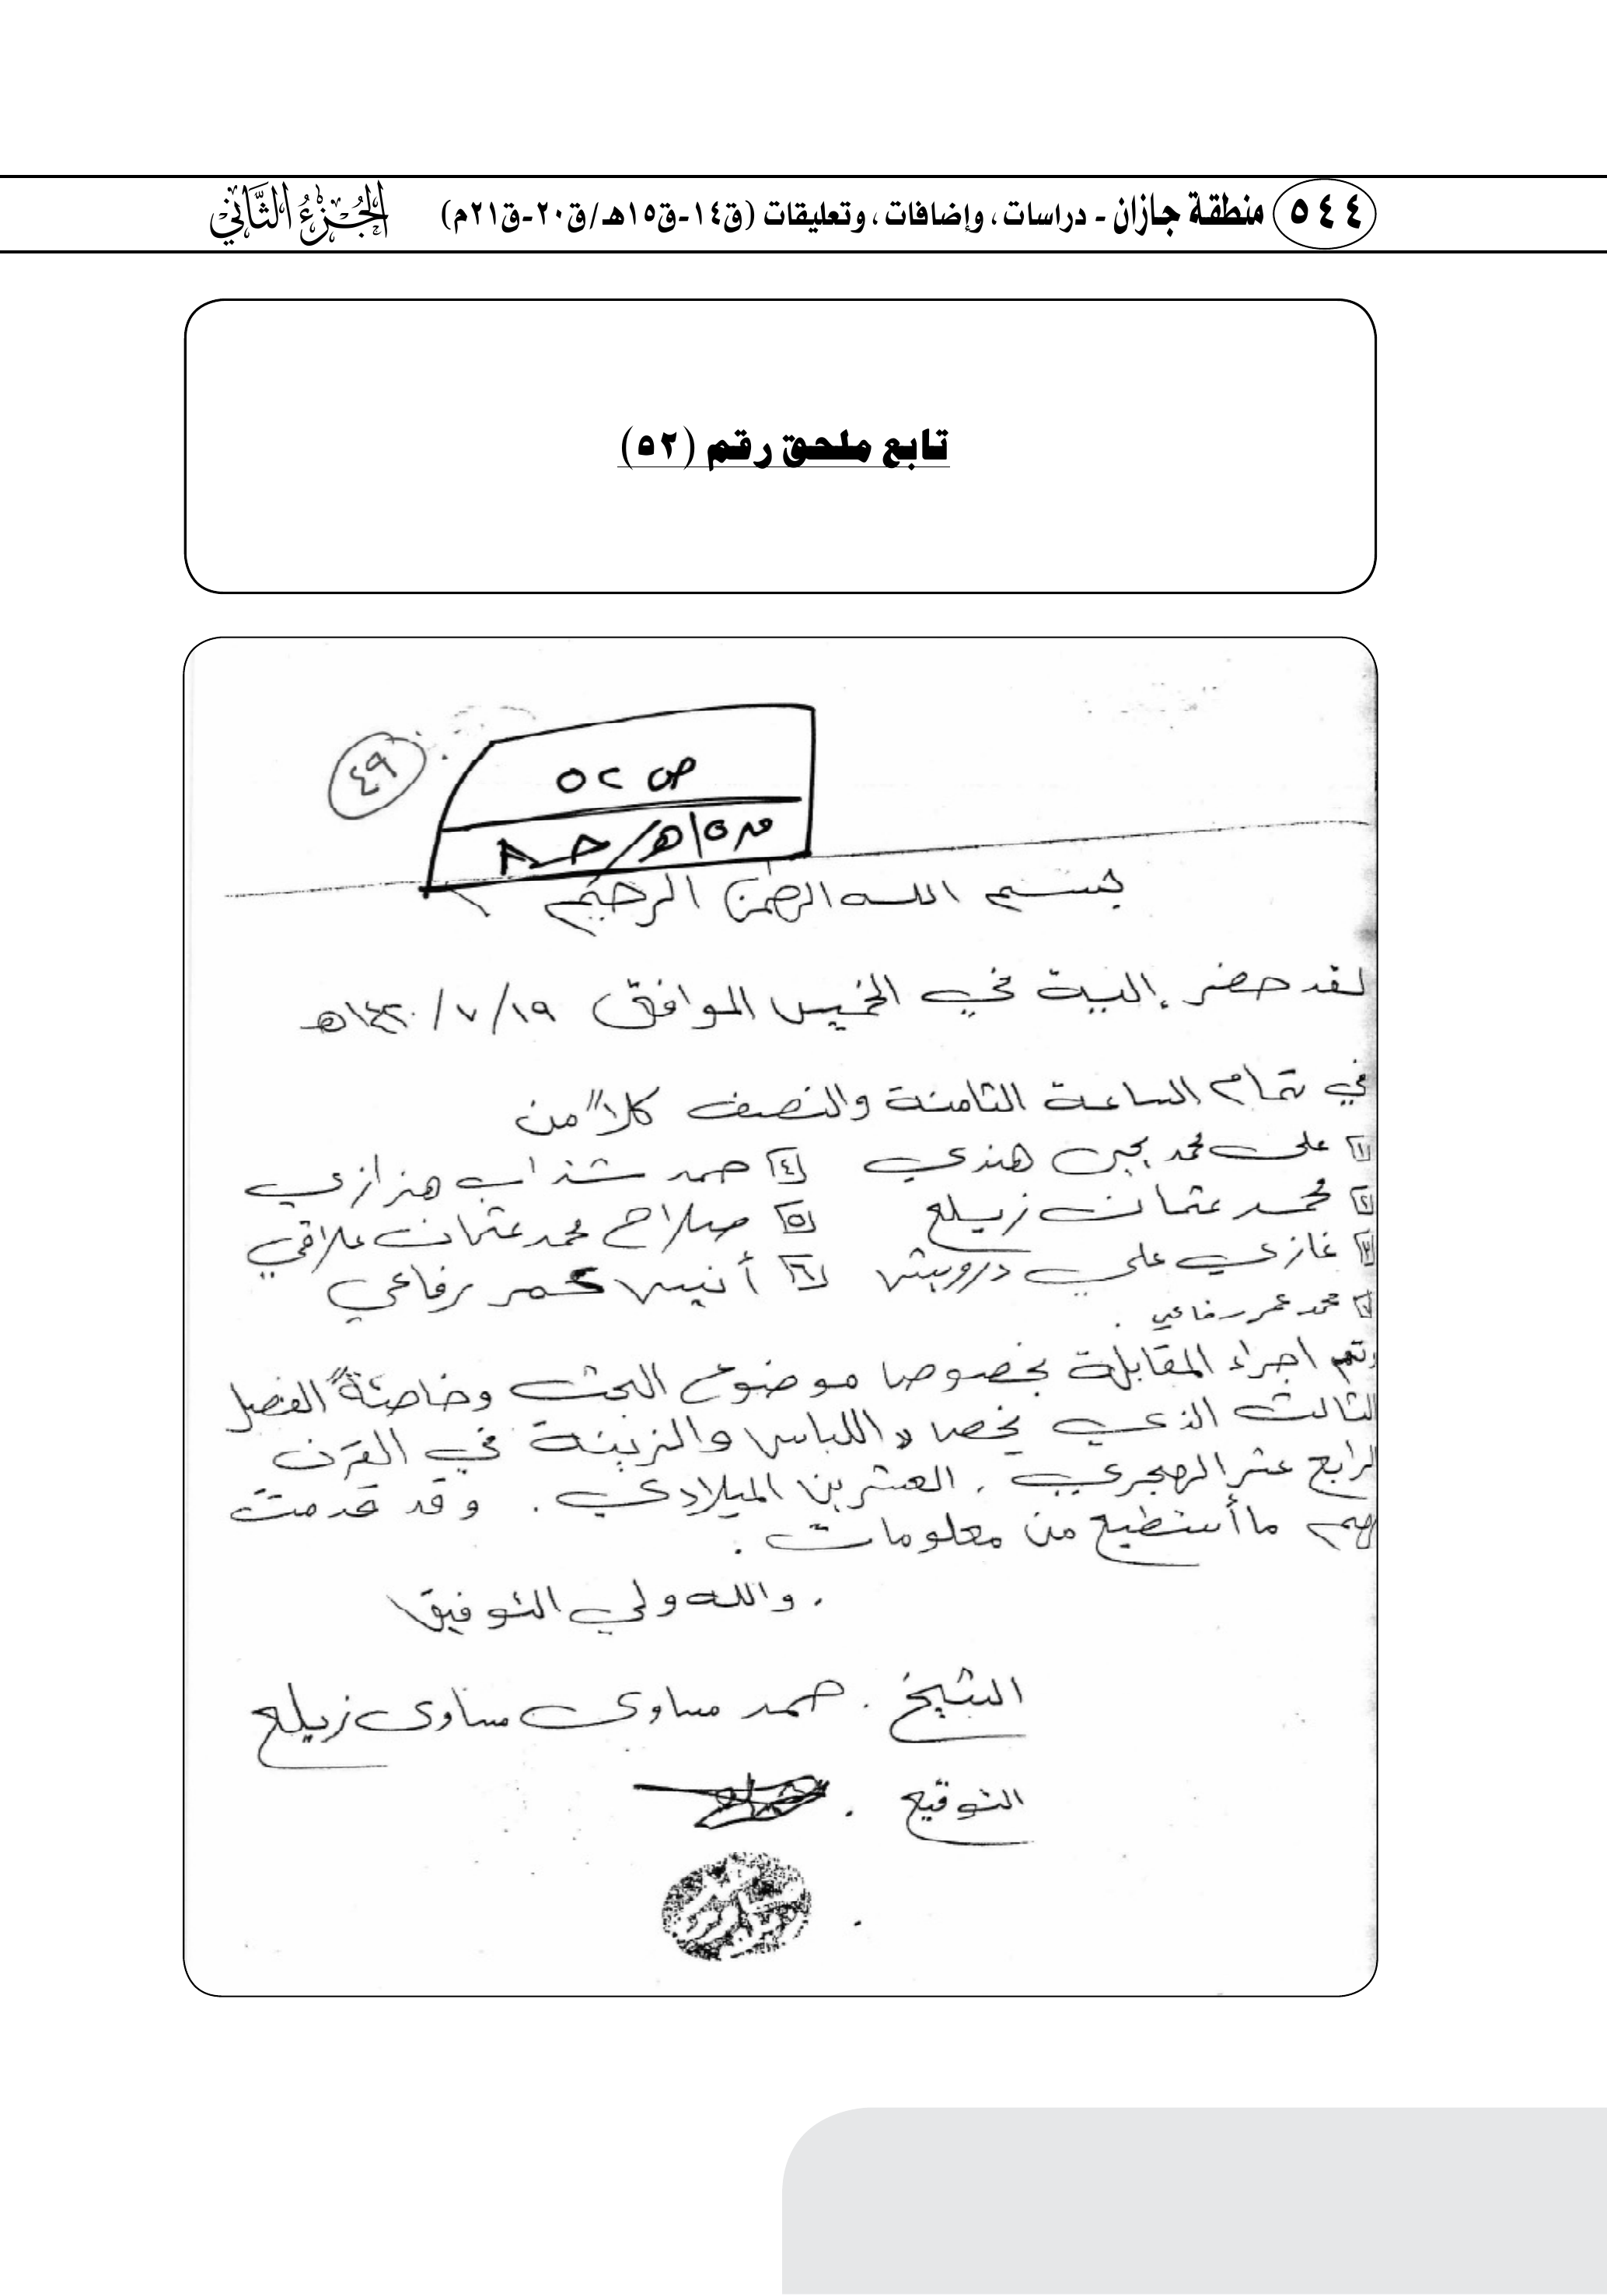 ٥٤٤ منطقة جازان - دراسات، وإضافات، وتعليقات (ق١٤-ق١٥هـ/ق٢٠-ق٢١م) الجزء الثاني
تابع ملحق رقم (٥٢)
٤٩
ص ٥٢
بسم الله الرحمن الرحيم
لقد حضر إلى البيت في الخميس الموافق ١٩/٧/١٤٢٠هـ
في تمام الساعة الثامنة والنصف كلاً من
١ علي محمد يحيى هندي ٤ حمد شذاب هزازي
٢ محمد عثمان زيلع ٥ صلاح محمد عثمان علاقي
٣ غازي علي درويش ٦ أنيس عمر رفاعي
محمد عمر رفاعي .
وتم اجراء المقابلة بخصوص موضوع البحث وخاصةً الفصل
الثالث الذي يخص اللباس والزينة في القرن
الرابع عشر الهجري . العشرين الميلادي . وقد قدمت
لهم ما أستطيع من معلومات .
. والله ولي التوفيق
الشيخ . حمد مساوى مساوى زيلع
التوقيع .